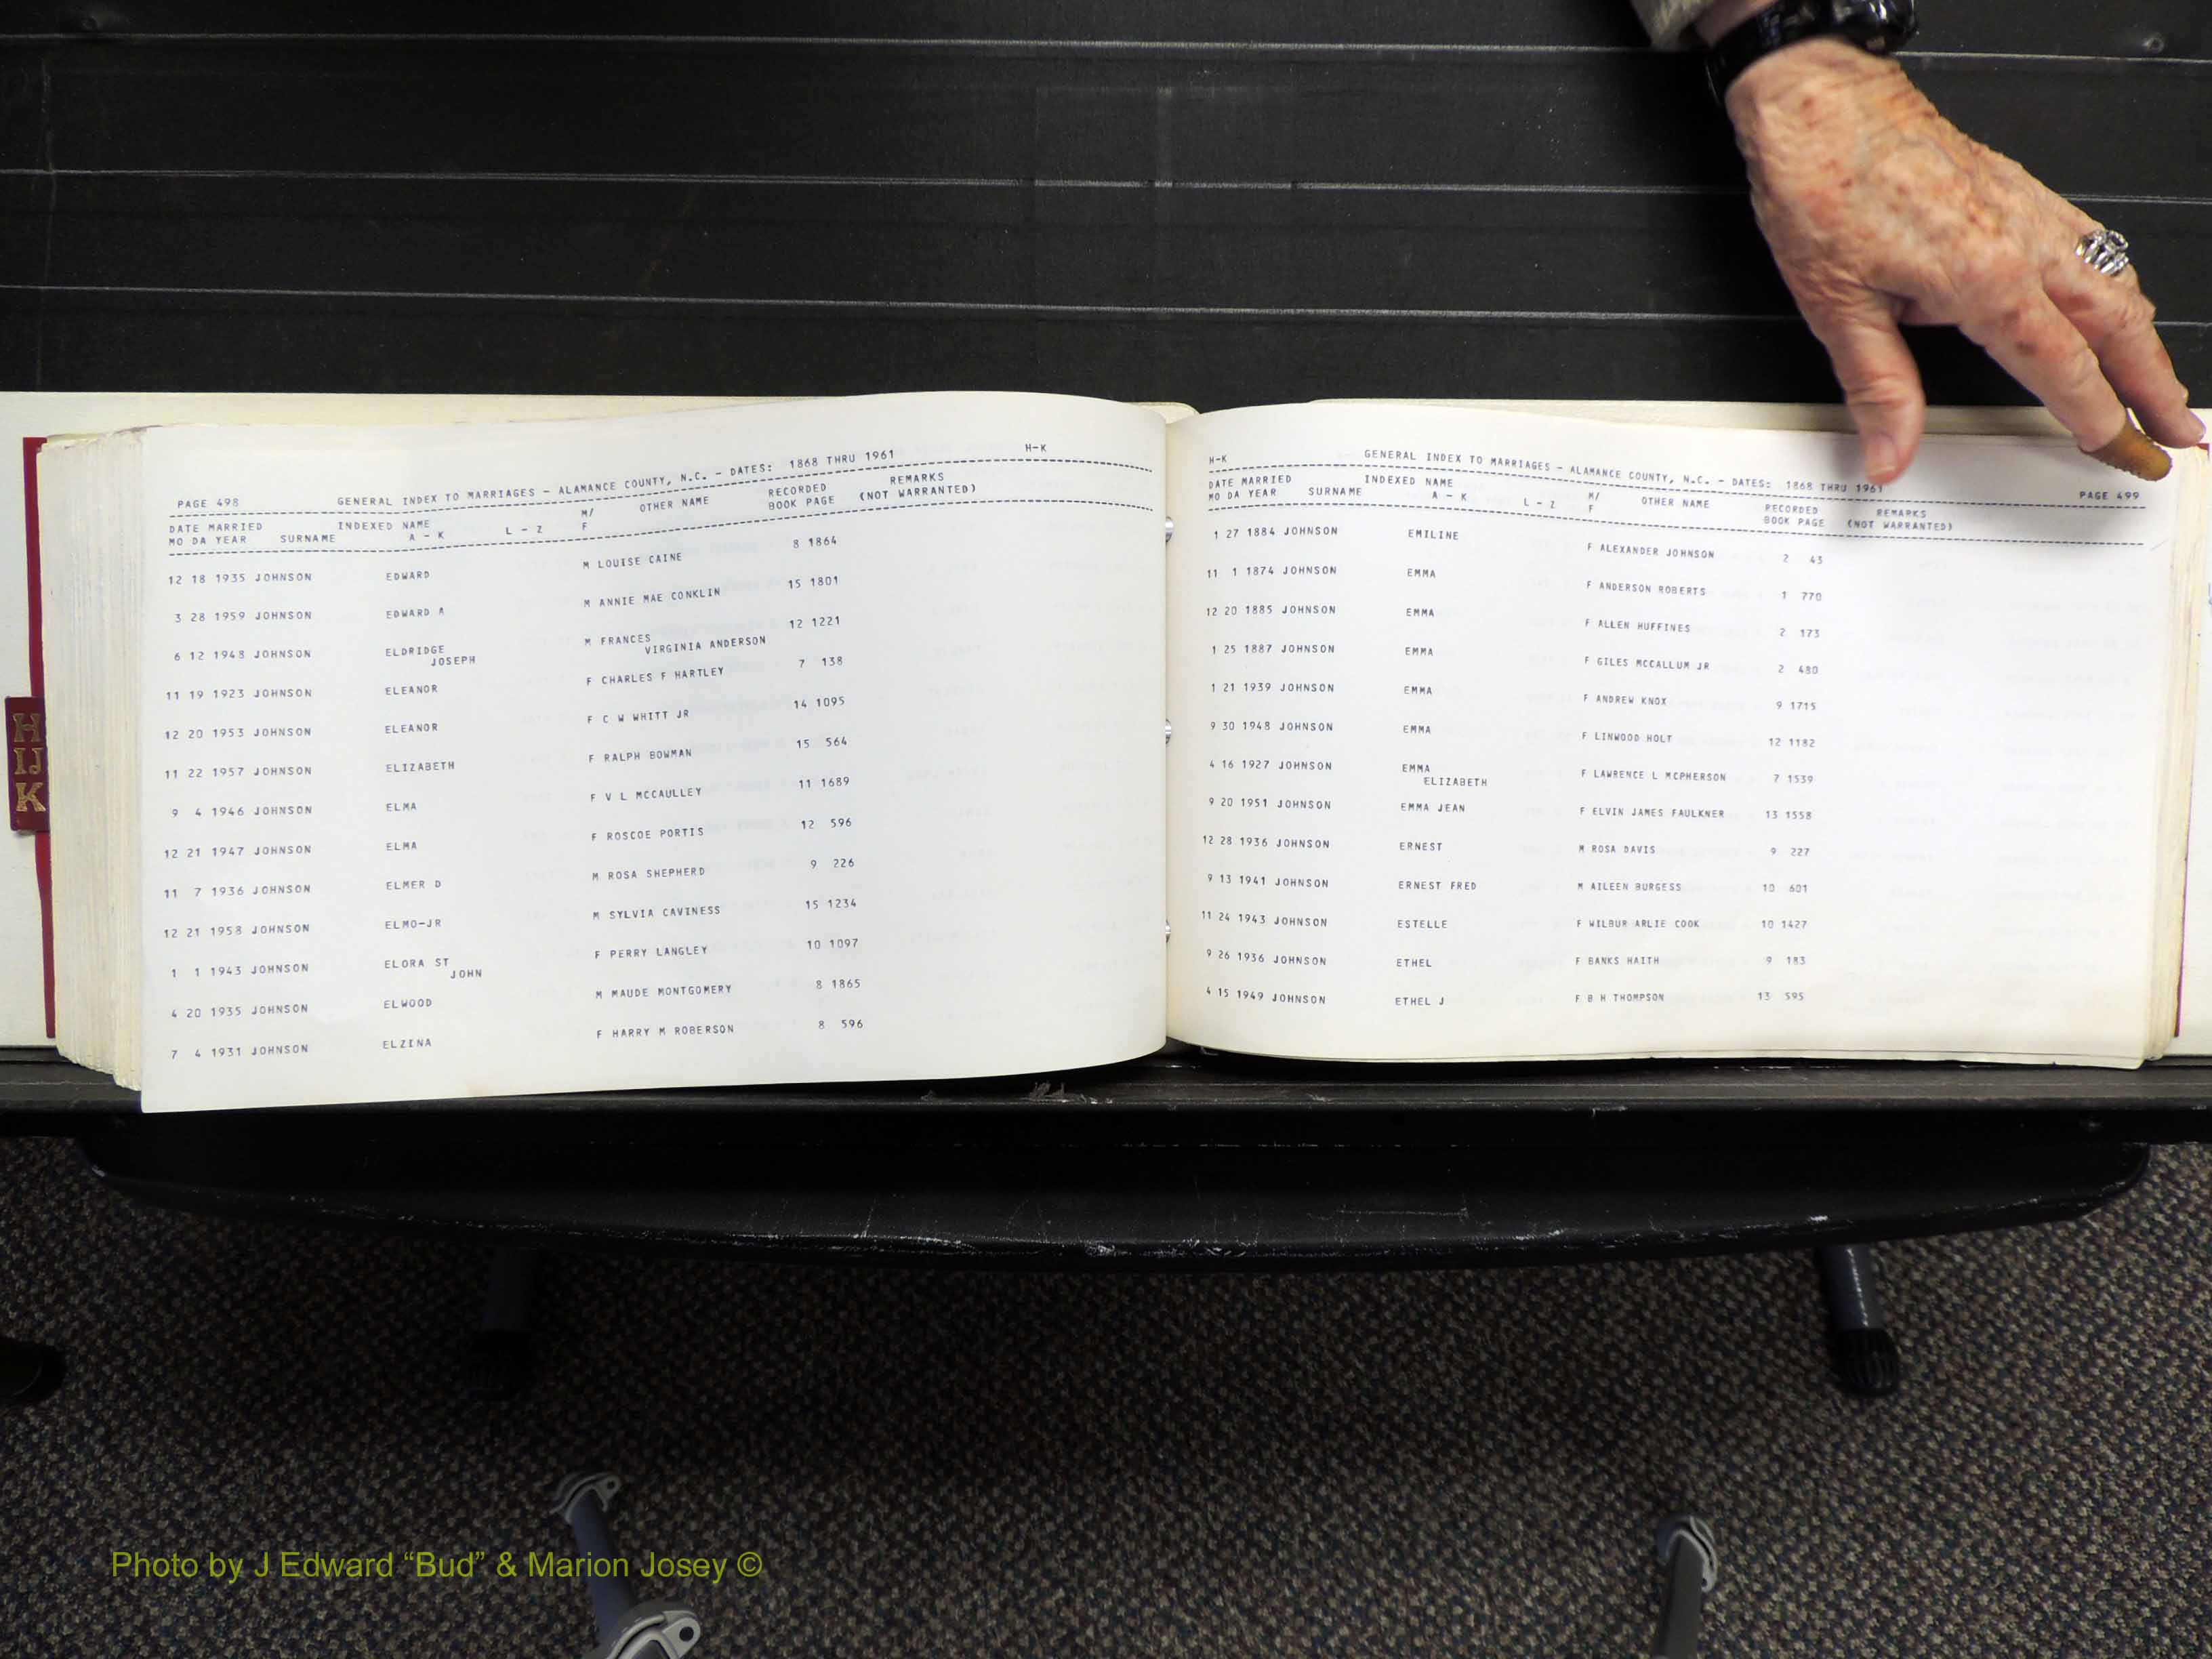 H
IJ
K
PAGE 498 GENERAL INDEX TO MARRIAGES - ALAMANCE COUNTY, N.C. - DATES: 1868 THRU 1961 H-K
DATE MARRIED INDEXED NAME M/ OTHER NAME RECORDED REMARKS
MO DA YEAR SURNAME A - K L - Z F BOOK PAGE (NOT WARRANTED)
12 18 1935 JOHNSON EDWARD M LOUISE CAINE 8 1864
3 28 1959 JOHNSON EDWARD A M ANNIE MAE CONKLIN 15 1801
6 12 1948 JOHNSON ELDRIDGE M FRANCES 12 1221
JOSEPH VIRGINIA ANDERSON
11 19 1923 JOHNSON ELEANOR F CHARLES F HARTLEY 7 138
12 20 1953 JOHNSON ELEANOR F C W WHITT JR 14 1095
11 22 1957 JOHNSON ELIZABETH F RALPH BOWMAN 15 564
9 4 1946 JOHNSON ELMA F V L MCCAULLEY 11 1689
12 21 1947 JOHNSON ELMA F ROSCOE PORTIS 12 596
11 7 1936 JOHNSON ELMER D M ROSA SHEPHERD 9 226
12 21 1958 JOHNSON ELMO-JR M SYLVIA CAVINESS 15 1234
1 1 1943 JOHNSON ELORA ST F PERRY LANGLEY 10 1097
JOHN
4 20 1935 JOHNSON ELWOOD M MAUDE MONTGOMERY 8 1865
7 4 1931 JOHNSON ELZINA F HARRY M ROBERSON 8 596
H-K GENERAL INDEX TO MARRIAGES - ALAMANCE COUNTY, N.C. - DATES: 1868 THRU 1961 PAGE 499
DATE MARRIED INDEXED NAME M/ OTHER NAME RECORDED REMARKS
MO DA YEAR SURNAME A - K L - Z F BOOK PAGE (NOT WARRANTED)
1 27 1884 JOHNSON EMILINE F ALEXANDER JOHNSON 2 43
11 1 1874 JOHNSON EMMA F ANDERSON ROBERTS 1 770
12 20 1885 JOHNSON EMMA F ALLEN HUFFINES 2 173
1 25 1887 JOHNSON EMMA F GILES MCCALLUM JR 2 480
1 21 1939 JOHNSON EMMA F ANDREW KNOX 9 1715
9 30 1948 JOHNSON EMMA F LINWOOD HOLT 12 1182
4 16 1927 JOHNSON EMMA F LAWRENCE L MCPHERSON 7 1539
ELIZABETH
9 20 1951 JOHNSON EMMA JEAN F ELVIN JAMES FAULKNER 13 1558
12 28 1936 JOHNSON ERNEST M ROSA DAVIS 9 227
9 13 1941 JOHNSON ERNEST FRED M AILEEN BURGESS 10 601
11 24 1943 JOHNSON ESTELLE F WILBUR ARLIE COOK 10 1427
9 26 1936 JOHNSON ETHEL F BANKS HAITH 9 183
4 15 1949 JOHNSON ETHEL J F B H THOMPSON 13 595
Photo by J Edward “Bud” & Marion Josey ©